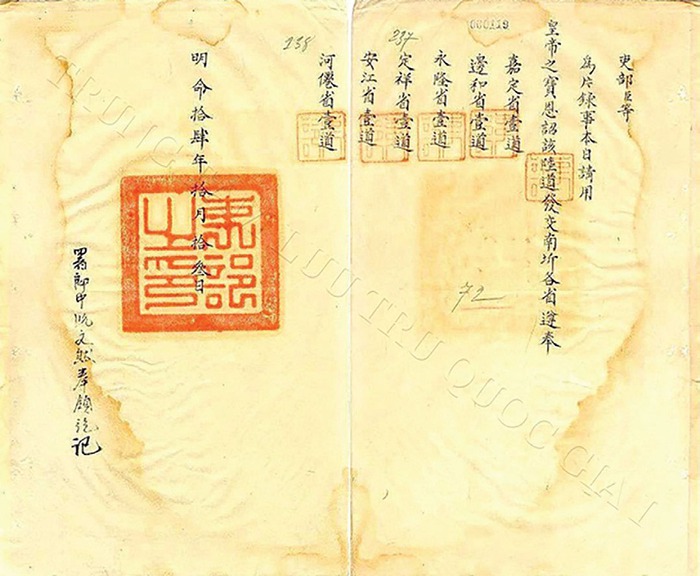 吏部臣等
為片錄事本日請用
皇帝之寶恩詔該陸道發交南圻各省遵奉
嘉定省壹道
邊和省壹道
永隆省壹道
定祥省壹道
安江省壹道
河僊省壹道
明命拾肆年拾月拾叁日
署郎中阮文 奉 記
吏部之印
000119
237
238
72
TRUNG TÂM LƯU TRỮ QUỐC GIA I